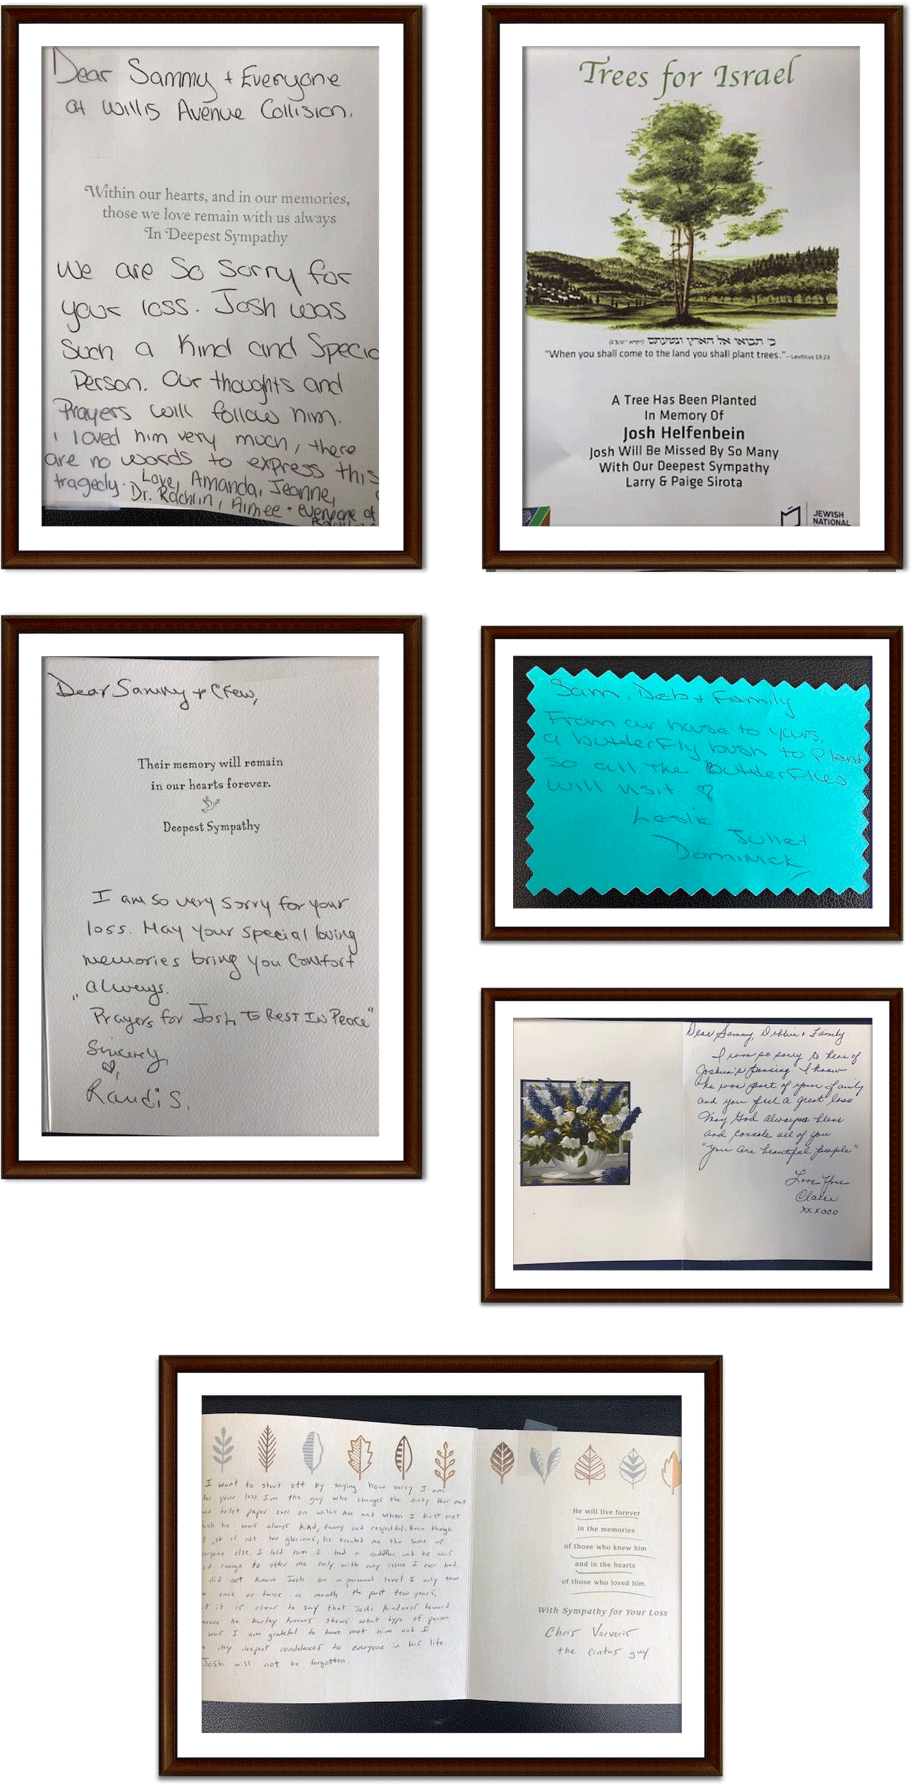 Dear Sammy + Everyone
at Willis Avenue Collision.
Within our hearts, and in our memories,
those we love remain with us always
In Deepest Sympathy
We are so sorry for
your loss. Josh was
such a kind and Specia
Person. Our thoughts and
Prayers will follow him.
I loved him very much, there
are no words to express this
tragedy. Love, Amanda, Jeanne,
Dr. Rachlin, Aimee + everyone at
Trees for Israel
כי תבואו אל הארץ ונטעתם
"When you shall come to the land you shall plant trees." - Leviticus 19:23
A Tree Has Been Planted
In Memory Of
Josh Helfenbein
Josh Will Be Missed By So Many
With Our Deepest Sympathy
Larry & Paige Sirota
JEWISH
NATIONAL
Dear Sammy + Crew,
Their memory will remain
in our hearts forever.
Deepest Sympathy
I am so very sorry for your
loss. May your special loving
memories bring you comfort
always.
"Prayers for Josh to Rest In Peace"
Sincerely,
Randi S.
Sam, Deb + Family
From our house to yours,
a butterfly bush to plant
so all the butterflies
will visit
Leslie
Juliet
Dominick
Dear Sammy, Debbie + Family
I was so sorry to hear of
Joshua's passing I know
he was part of your family
and you feel a great loss
May God always bless
and console all of you
"You Are beautiful people"
Love You
Claire
xxxooo
I want to start off by saying how sorry I am
for your loss. I'm the guy who changes the dirty floor mat
and toilet paper over on Willis Ave and when I first met
Josh he was always kind, funny and respectful. Even though
job is not too glorious, he treated me the same as
everyone else. I told him I had a and he was
enough to offer me help with any issue I ever had.
did not know Josh on a personal level I only saw
once or twice a month the past few years,
it is clear to say that Josh's kindness toward
he barley knows shows what type of person
was I am grateful to have met him and I
my deepest condolences to everyone in his life.
Josh will not be forgotten
He will live forever
in the memories
of those who knew him
and in the hearts
of those who loved him
With Sympathy for Your Loss
Chris Varveris
the cintas guy